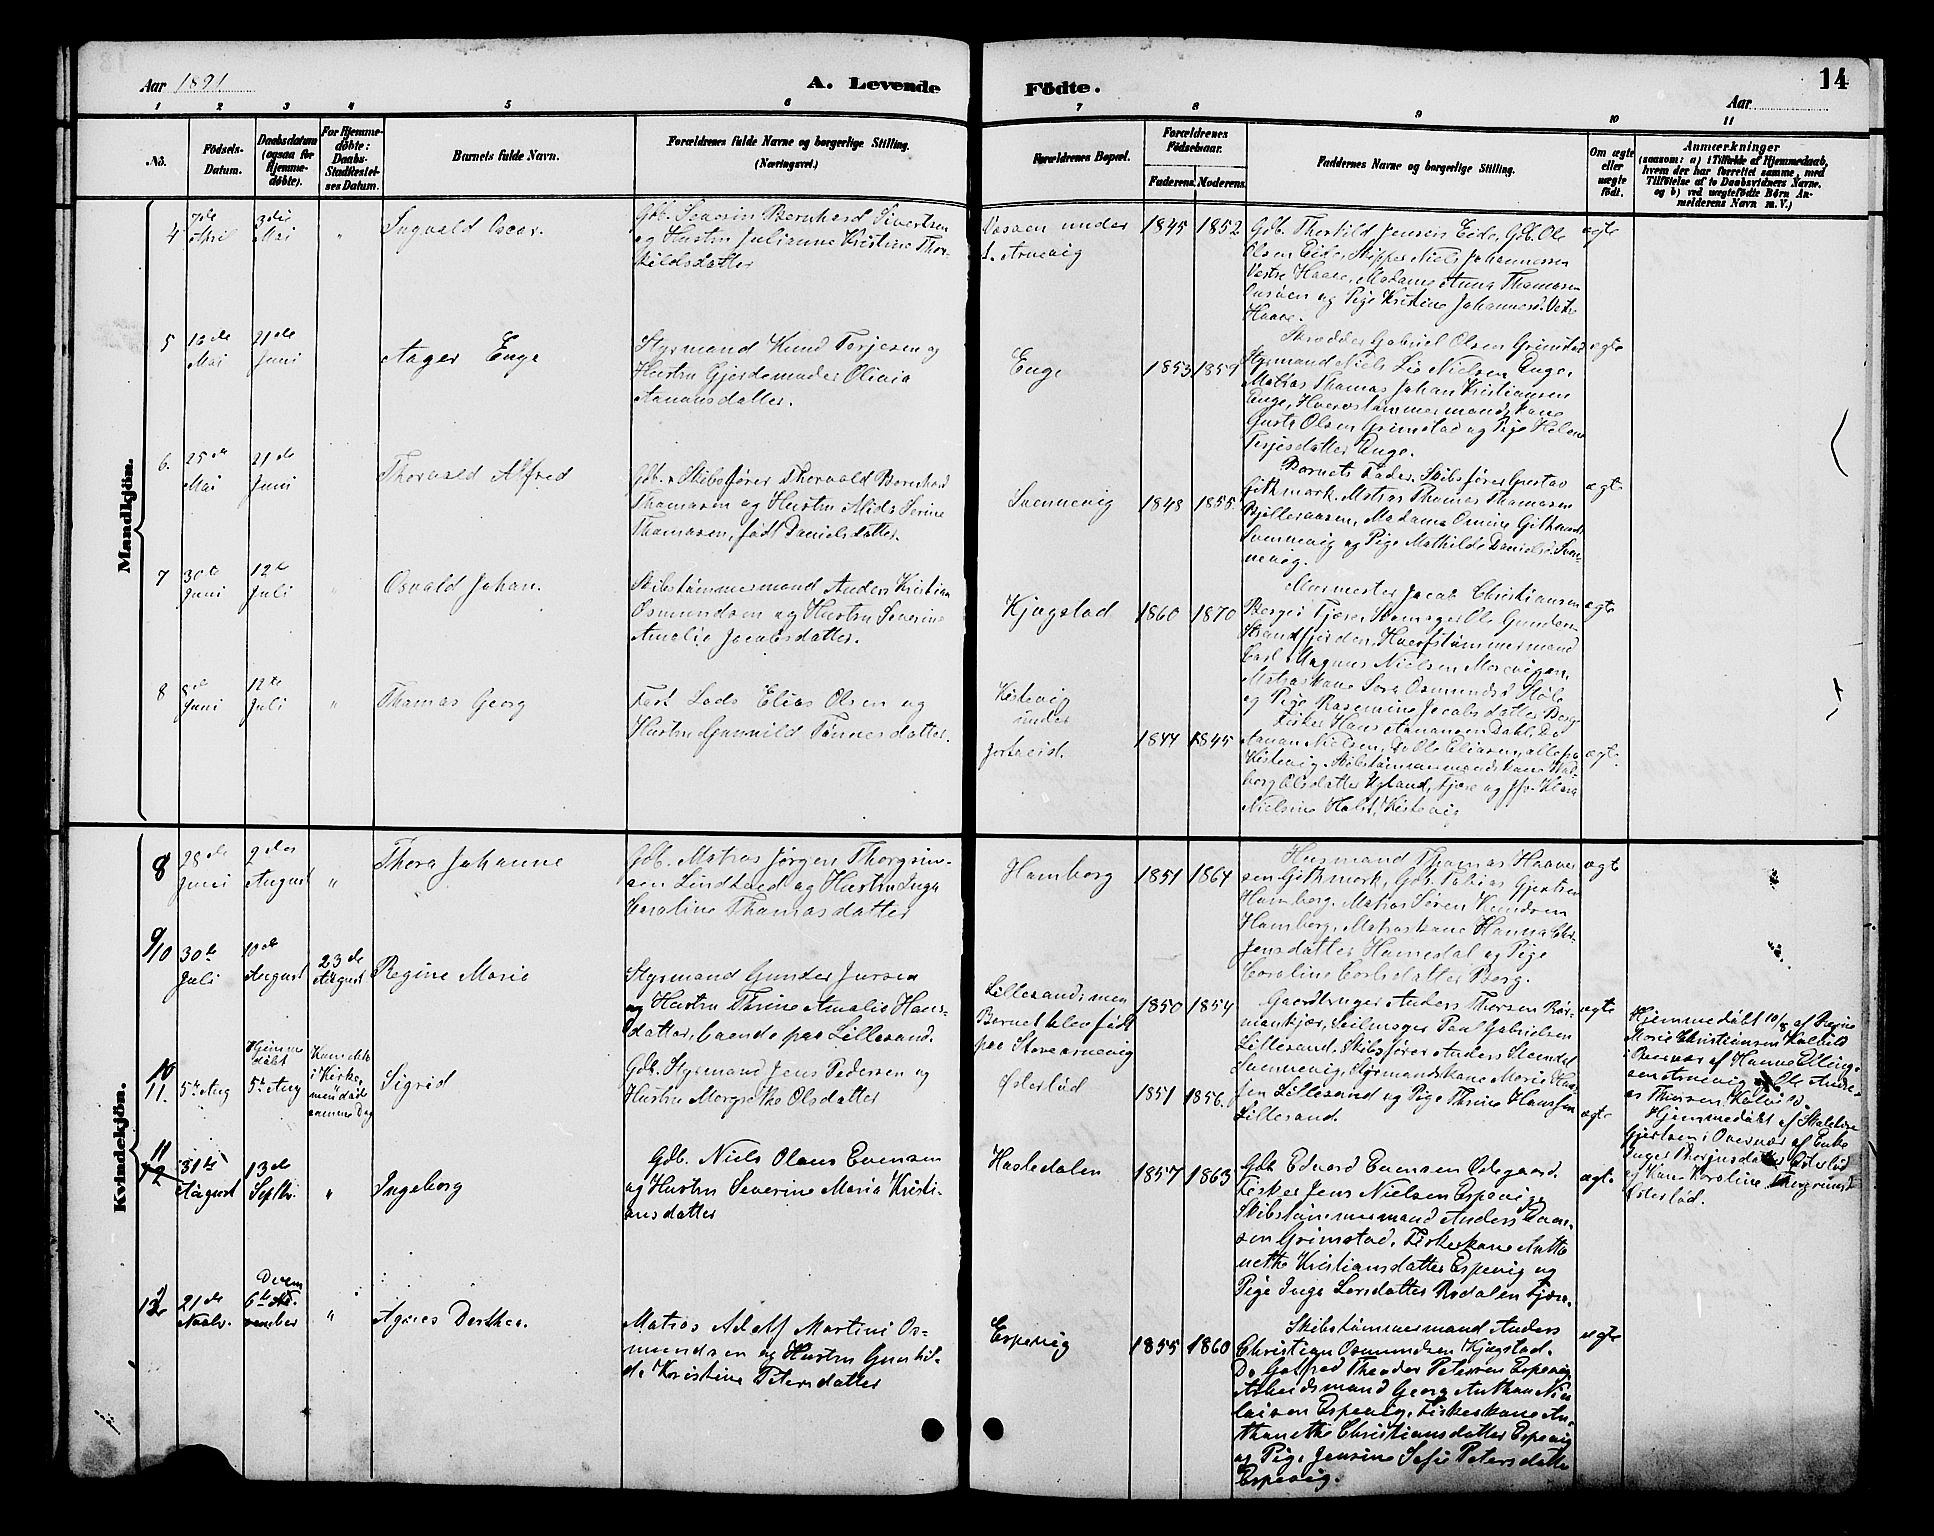 Aar 1891
A. Levende
Födte.
14
Aar
1 2 3 4 5 6 7 8 9 10 11
No.
Födsels-
Datum.
Daabsdatum
(ogsaa for
Hjemme-
døbte).
For Hjemme-
døbte:
Daabs-
Stadfæstel-
ses Datum.
Barnets fulde Navn.
Forældrenes fulde Navne og borgerlige Stilling.
(Næringsvei.)
Forældrenes Bopæl.
Forældrenes
Födselsaar.
Faderens. Moderens.
Faddernes Navne og borgerlige Stilling.
Om ægte
eller
uægte
födt.
Anmærkninger
(saasom: a) i Tilfælde af Hjemmedaab,
hvem der har forrettet samme, med
Tilföielse af to Daabsvidners Navne.
og b) ved uægtefödte Börn An-
melderens Navn m. V.)
Mandkjön.
4
7de
April
3die
Mai
"
Ingvald Oscar.
Gdb. Severin Bernhard Sivertsen
og Hustru Julianne Kristine Thor-
kildsdatter
under
Arnevig
1845 1852
Gdb. Therkild Jensen Eide, Gdb. Ole
Olsen Eide, Skipper Niels Johannessen
Vestre Haave, Madame Anna Thomasen
og Pige Kristine Johannesd. Vestre
Haave.
ægte
5
Mai
21de
Juni
Aager Enge
Styrmand Knud Terjesen og
Hustru Gjerdemader Olivia
Aanansdatter.
Enge
1853 1859
Skrædder Gabriel Olsen Grimstad
Styrmand Niels Lie Nielsen Enge.
Matros Thomas Johan Kristiansen
Enge, Hverostømmermandskone
Guste Olsen Grimstad og Pige Helene
Terjesdatter Enge.
ægte
6.
25de
Mai
21de
Juni
Thorvald Alfred
Gdb. & Skibsfører Thorvald Bernhard
Thomasen og Hustru Alida Serine
Thomasen, født Danielsdatter.
Svennevig
1848 1855.
Barnets Fader, Skibsfører Gustav
Githmark, Matros Thomas Thomasen
Madame Githmark
Svennevig og Pige Mathilde Daniels. Sven-
nevig.
ægte
7
30te
Juni
12te
Juli
"
Osvald Johan.
Skibstømmermand Anders Kristian
Osmundsen og Hustru Severine
Amalie Jacobsdatter.
Kjøgstad
1860 1870
Murmester Jacob Christiansen
Berge i Fjære, Ole Gundersen
Strandfjorden, Hverftømmermand
Carl Magnus Nielsen Morevigen,
Matroskone Sara Osmundsd.
og Pige Rasemine Jacobsdatter Berg.
ægte
8
8de
Juni
12te
Juli
"
Thomas Georg
Fast Lods Elias Olsen og
Hustru Gunvild Tønnesdatter.
Kistevig
under
1844 1845
Fisker Hans Aanansen Dahl, Do
Aanan Nielsen, Do Ole Eliasen, alle fra
Kistevig, Skibstømmermandskone Wal-
borg Olsdatter Fjære og Klara
Nielsine Holst, Kistevig
ægte.
Kvindekjön.
8
28de
Juni
2den
August
"
Thora Johanne
Gdb. Matros Jørgen Thorgrim-
sen Lindtveid og Hustru Inga
Caroline Thomasdatter
Hamborg
1851 1864
Husmand Thomas Haave-
sen Githmark, Gdb. Tobias Gjertsen
Hamborg, Matros Søren Knudsen
Hamborg, Matroskone Hanna
Jensdatter Hamredal og Pige
Caroline Carlsdatter Berg.
ægte
9/10
30te
Juli
10de
August
23de
August
Regine Marie
Styrmand Gunder Jursen
og Hustru Thrine Amalie Hans-
datter, baende paa Lillesand.
Lillesand, men
Barnet blev født
paa Store Arnevig
1850 1854
Gaardbruger Anders Thorsen
Seilmager Paul Gabrielsen
Lillesand, Skibsfører Anders
Svennevig, Styrmandskone Marie
Lillesand og Pige Thrine Hansen
Lillesand.
ægte
Hjemmedøbt 10/8 af Regine
Marie Christiansen Kalvild
i Overvær af Hanne Elling-
sen Arnevig og Ole Andre-
as Thorsen Kalvild.
10
11.
5te Aug
Hjemme
døbt
5te Aug
Kom ikke
i Kirke
men døde
samme Dag
Sigrid
Gdb. Styrmand Jens Pedersen og
Hustru Margrethe Olsdatter
Østerlid
1851 1856.
ægte
Hjemmedøbt af
Gjertsen i Overvær af Enke
Inger Thorjusdatter Østerlid
og Kone Karoline
Østerlid.
11
12
31te
August
13de
Septbr.
"
Ingeborg
Gdb. Niels Olaus Evensen
og Hustru Severine Maria Kristi-
ansdatter
Hasledalen
1857 1863
Gdb. Edvard Evensen Ødegaard.
Fisker Jens Nielsen Espevig,
Skibstømmermand Anders
sen Grimstad, Fiskerkone Antto-
nethe Kristiansdatter Espevig og
Pige Inge Larsdatter Rødalen Fjære.
ægte
12
21de
Novbr.
Decem
6te
vember
"
Agnes Dorthea.
Matros Adolf Martini Os-
mundsen og Hustru Gunhil-
de Kristine Petersdatter
Espevig
1855 1860
Skibstømmermand Anders
Christian Osmundsen Kjøgstad.
Do Gotfred Theodor Petersen Espevig
Arbeidsmand Georg Anthon Nico-
laisen Espevig, Fiskerkone An-
thonethe Christiansdatter Espevig
og Pige Jensine Sofie Petersdatter
Espevig.
ægte